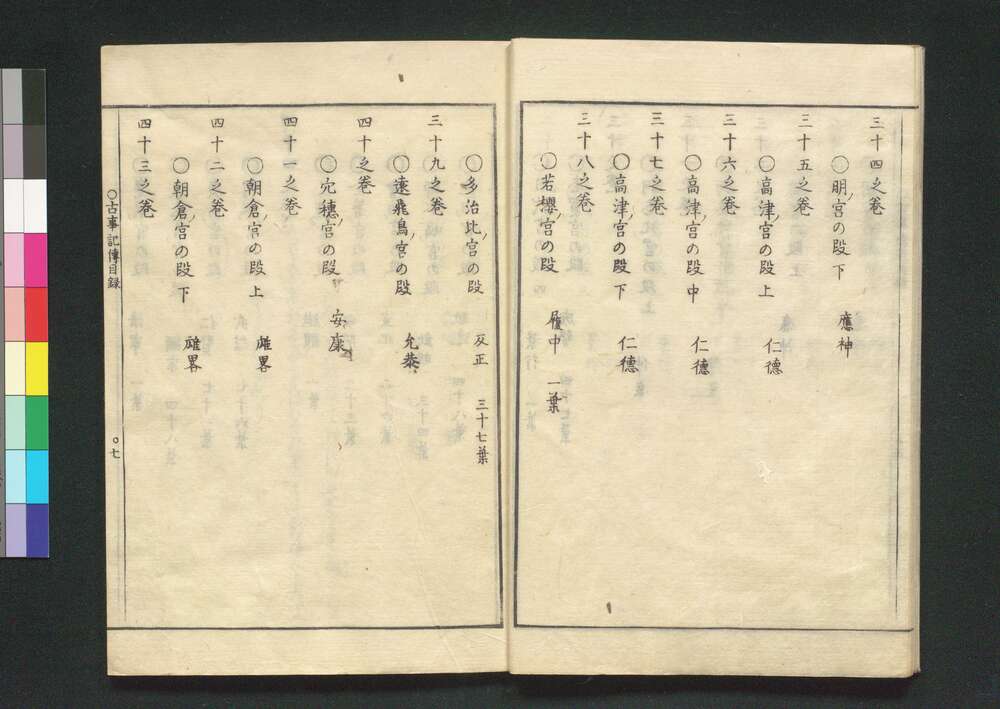 三十四之巻
〇明ノ宮の段下 應神
三十五之巻
〇高津ノ宮の段上 仁德
三十六之巻
〇高津ノ宮の段中 仁德
三十七之巻
〇高津ノ宮の段下 仁德
三十八之巻
〇若櫻ノ宮の段 履中 一葉
〇多治比ノ宮の段 反正 三十七葉
三十九之巻
〇遠飛鳥ノ宮の段 允恭
四十之巻
〇穴穗ノ宮の段 安康
四十一之巻
〇朝倉ノ宮の段上 雄畧
四十二之巻
〇朝倉ノ宮の段下 雄畧
四十三之巻
〇古事記傳目録 〇七